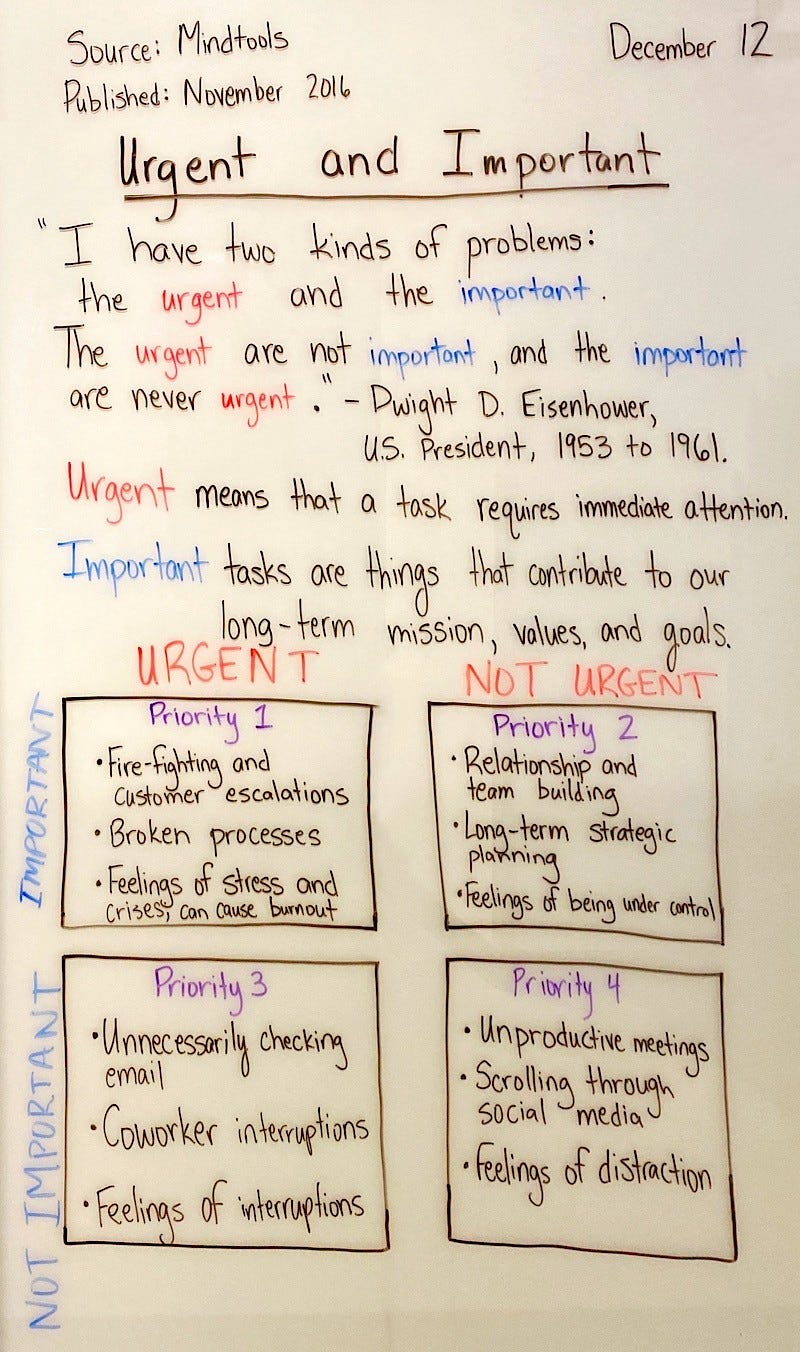 Source: Mindtools
December 12
Published: November 2016
Urgent and Important
"I have two kinds of problems:
the urgent and the important.
The urgent are not important, and the important
are never urgent." - Dwight D. Eisenhower,
U.S. President, 1953 to 1961.
Urgent means that a task requires immediate attention.
Important tasks are things that contribute to our
long-term mission, values, and goals.
URGENT
NOT URGENT
IMPORTANT
Priority 1
• Fire-fighting and
customer escalations
• Broken processes
• Feelings of stress and
crises, can cause burnout
Priority 2
• Relationship and
team building
• Long-term strategic
planning
• Feelings of being under control
NOT IMPORTANT
Priority 3
• Unnecessarily checking
email
• Coworker interruptions
• Feelings of interruptions
Priority 4
• Unproductive meetings
• Scrolling through
social media
• Feelings of distraction